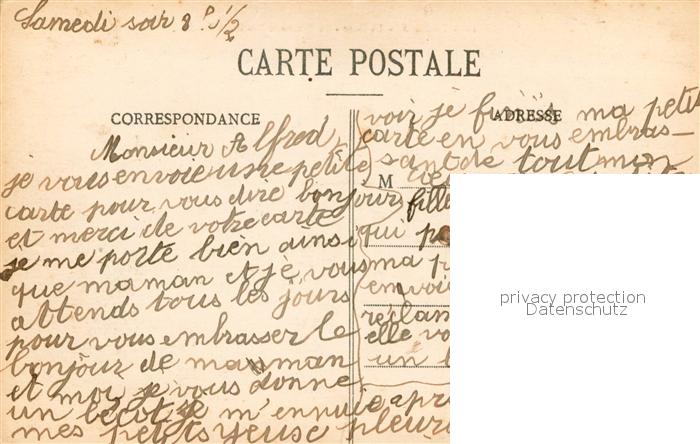 Samedi soir 8 h 1/2
CARTE POSTALE
CORRESPONDANCE
ADRESSE
Monsieur Alfred
je vous envoie une petite
carte pour vous dire bonjour
et merci de votre carte
je me porte bien ainsi
que maman et je vous
attends tous les jours
pour vous embrasser le
bonjour de maman
et moi je vous donne
un bécot je m'ennuie apr
mes petits yeuse pleur
voir je fini ma petit
carte en vous embras-
sant de tout mon
M
fille
qui
ma
envoi
reclam
elle vo
un
privacy protection
Datenschutz